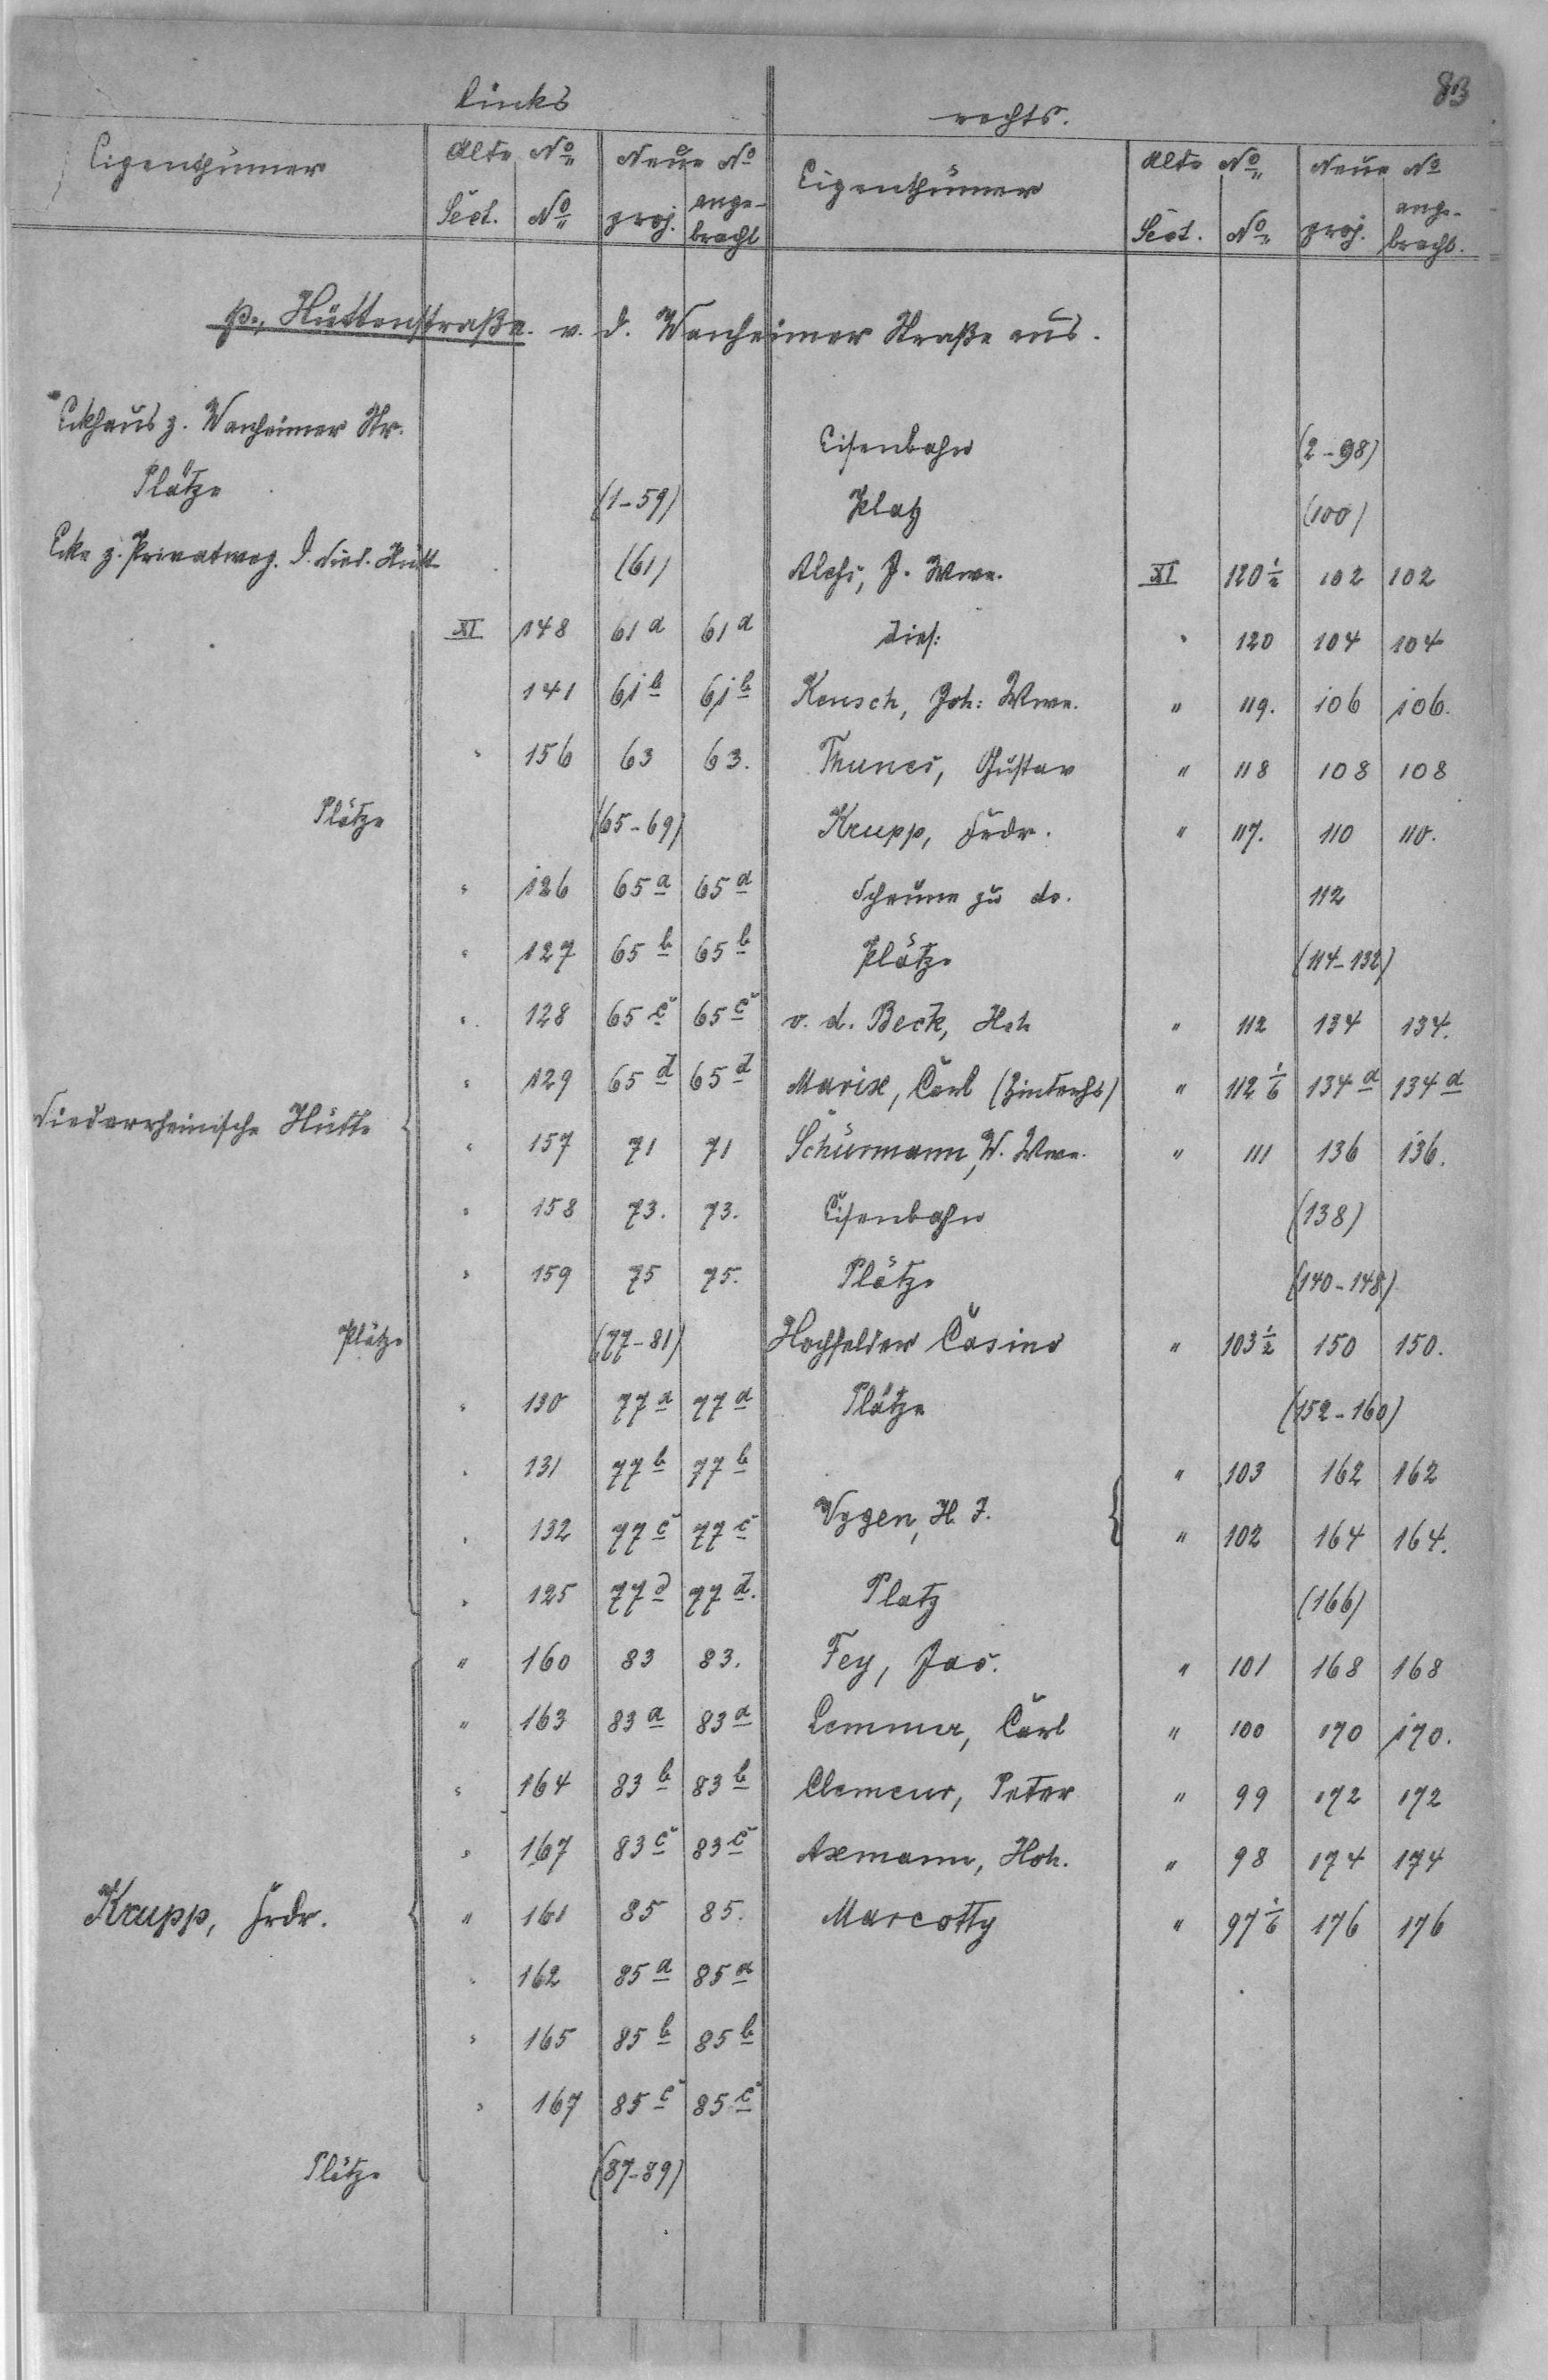 83
links
rechts.
Eigenthümer | Alte No | Neue No | Eigenthümer | Alte No | Neue No
Sect. | No | proj. | ange-bracht | Sect. | No | proj. | ange-bracht.
p., Hüttenstraße. v. d. Wanheimer Straße aus.
Eckhaus z. Wanheimer Str. | Eisenbahn | (2-98)
Plätze | (1-59) | Platz | (100)
Ecke z. Privatweg. d. Nied. Hütt. | (61) | J. Wwe. | XI | 120 1/2 | 102 | 102
XI | 148 | 61 a | 61 a | dies: | " | 120 | 104 | 104
141 | 61 b | 61 b | Kensch, Joh: Wwe. | " | 119. | 106 | 106.
" | 156 | 63 | 63. | Thunes, Gustav | " | 118 | 108 | 108
Plätze | (65-69) | Krupp, Frdr. | " | 117. | 110 | 110.
" | 126 | 65 a | 65 a | Scheune zu do. | 112
" | 127 | 65 b | 65 b | Plätze | (114-132)
" | 128 | 65 c | 65 c | v. d. Beck, Hch | " | 112 | 134 | 134.
" | 129 | 65 d | 65 d | Marix, Carl (Hinterhs) | " | 112 1/6 | 134 a | 134 a
Niederrheinische Hütte | " | 157 | 71 | 71 | Schürmann, W. Wwe. | " | 111 | 136 | 136.
" | 158 | 73. | 73. | Eisenbahn | (138)
" | 159 | 75 | 75. | Plätze | (140-148)
Plätze | (77-81) | Hochfelder Casino | " | 103 1/2 | 150 | 150.
" | 130 | 77 a | 77 a | Plätze | (152-160)
" | 131 | 77 b | 77 b | " | 103 | 162 | 162
Vygen, H. J.
" | 132 | 77 c | 77 c | " | 102 | 164 | 164.
" | 125 | 77 d | 77 d. | Platz | (166)
" | 160 | 83 | 83. | Fey, Jac. | " | 101 | 168 | 168
" | 163 | 83 a | 83 a | Lemmer, Carl | " | 100 | 170 | 170.
" | 164 | 83 b | 83 b | Clemens, Peter | " | 99 | 172 | 172
" | 167 | 83 c | 83 c | Axmann, Hch. | " | 98 | 174 | 174
Krupp, Frdr. | " | 161 | 85 | 85. | Marcotty | " | 97 1/6 | 176 | 176
" | 162 | 85 a | 85 a
" | 165 | 85 b | 85 b
" | 167 | 85 c | 85 c
Plätze | (87-89)